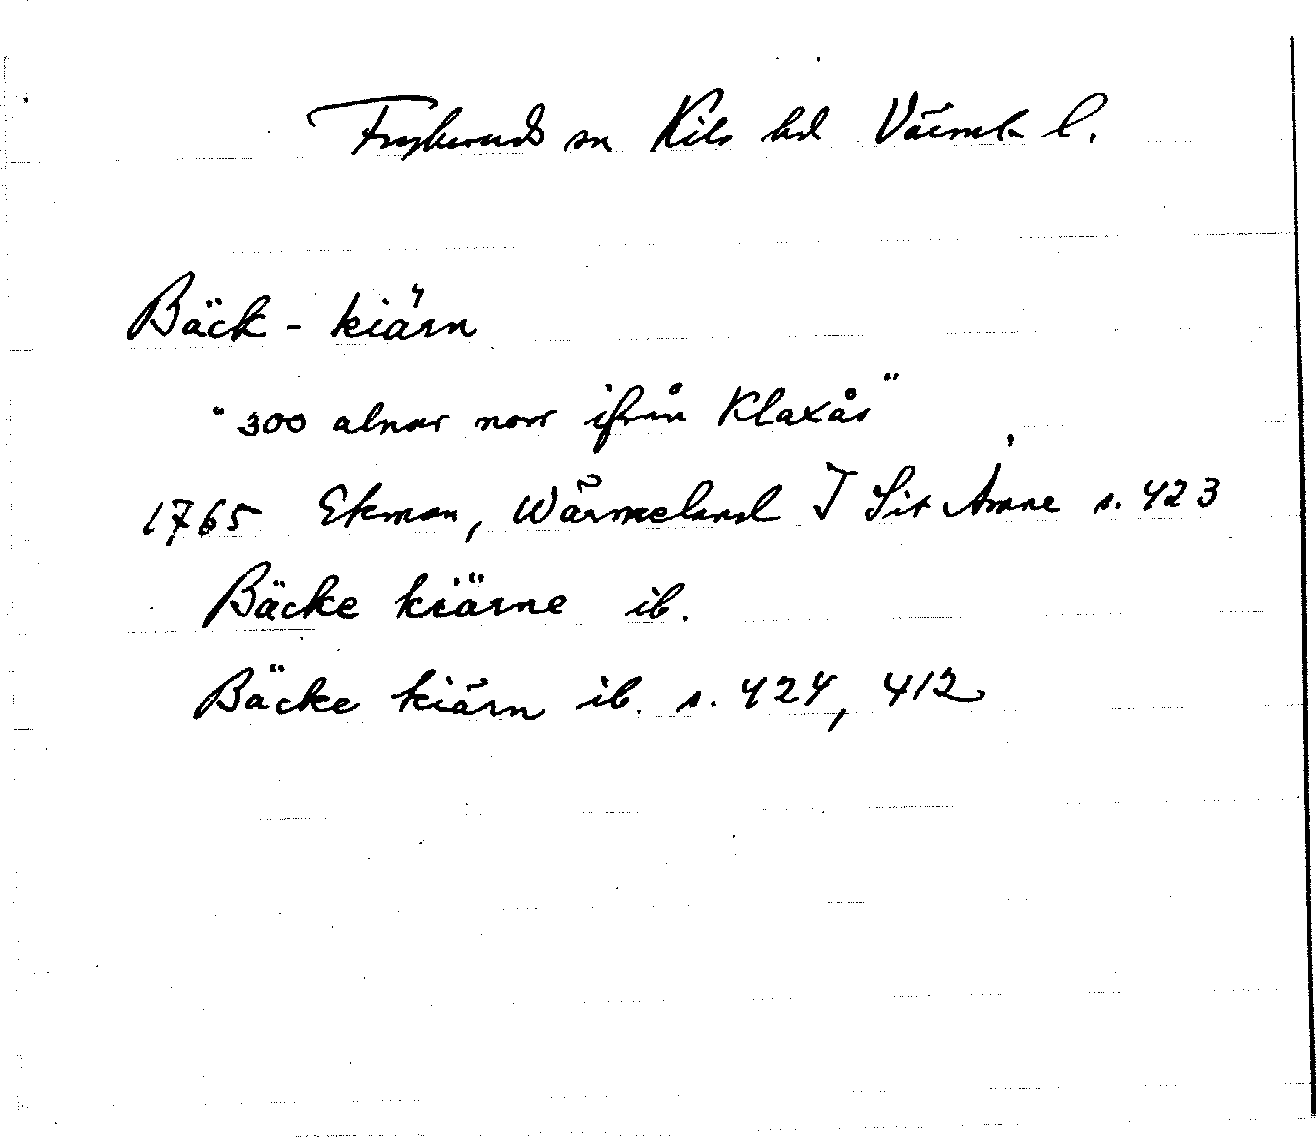 Fryksands sn Kils hd Värml. l.
Bäck-kiärn
"300 alnar norr ifrån Klaxås"
1765 Ekman, Wärmeland I Sit Ämne s. 423
Bäcke kiärne ib.
Bäcke kiärn ib. s. 424, 412